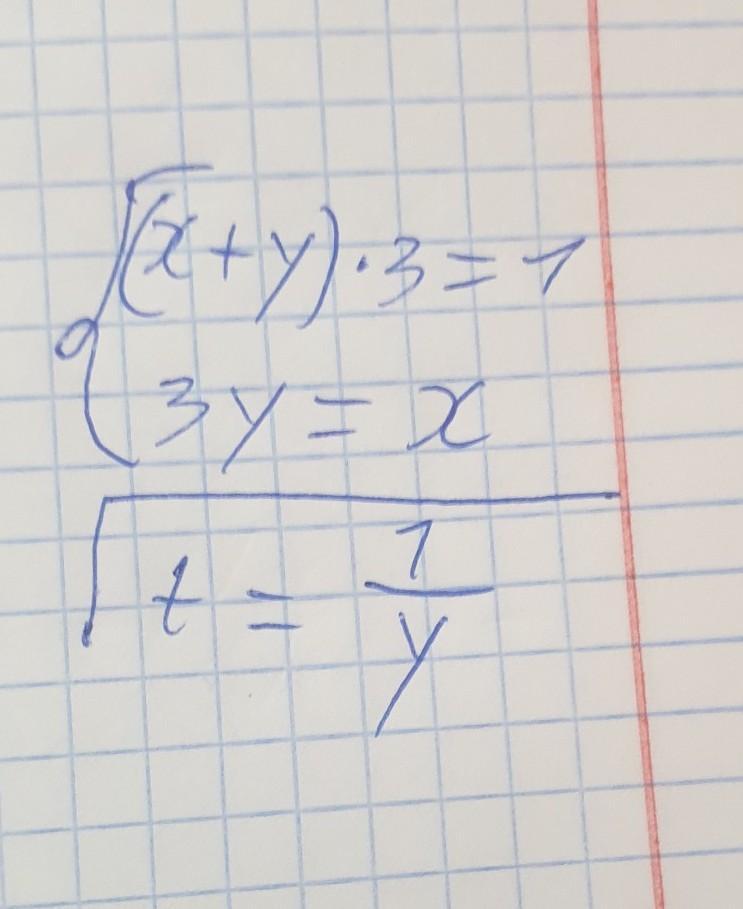 (x+y)·3=1
3y=x
t=1/y